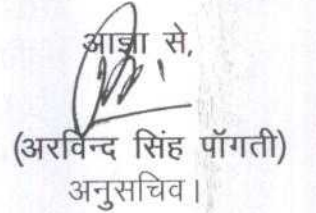 आज्ञा से,
(अरविन्द सिंह पॉगती)
अनुसचिव।